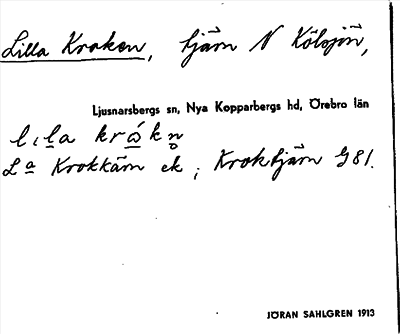 Lilla Kroken, tjärn N Kölsjön,
Ljusnarsbergs sn, Nya Kopparbergs hd, Örebro län
lıla krǻkn̥
La Krokkärn ek; Kroktjärn G81.
JÖRAN SAHLGREN 1913